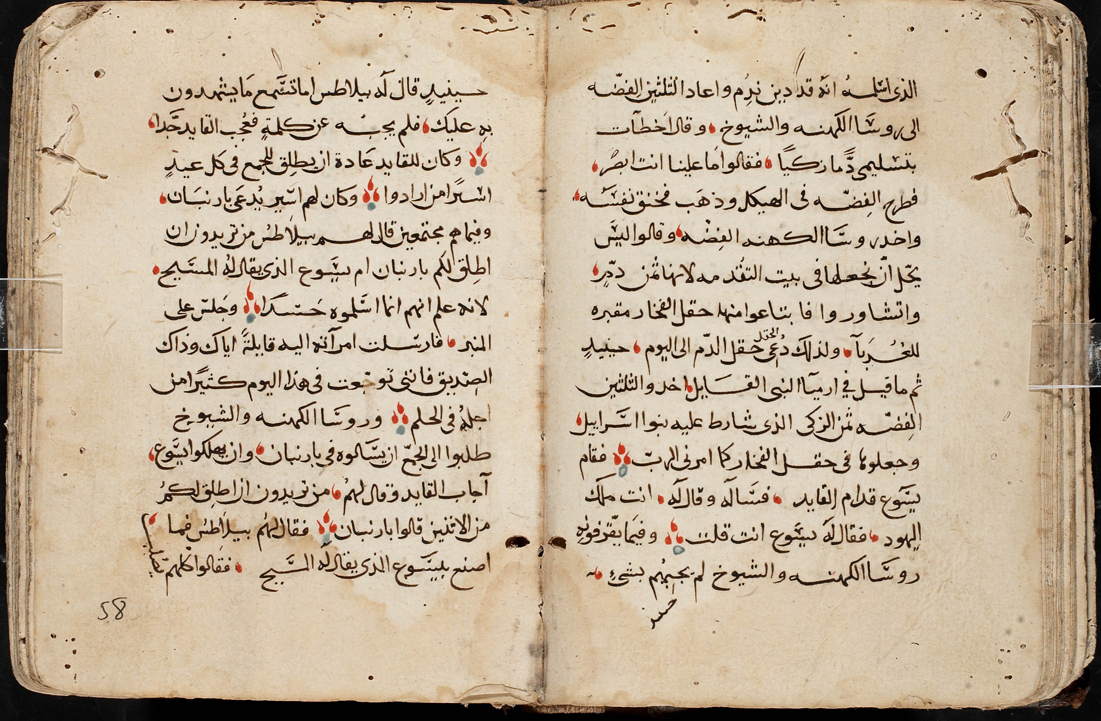 الذى اسلمهُ انه قد دين ندِم واعاد الثلثين الفضّه
الى روسَا الكهنه والشيوخ وقال اخطآت
بتسليمى دًّما زكيّاً فقالوا ما علينا انت ابصُر
فطرح الفِضّه فى الهيكل وذهَب فخنق نفسَه
واخد روسَا الكهنه الفِضّه وقالوا ليسَ
يحَل ان نجعلها فى بيت التقدمه لانها ثمن دمّ
واتشاوروا فابتاعوا منها حقل الفخار مقبره
للغُربآء ولذلك دُعى الحقل حقل الدّم الى اليوم حينيدٍ
تم ما قيل فى ارميآ النبى القايل اخدوا الثلثين
الفِضّه ثمن الزكى الذى شارط عليه بنوا اسَّراييل
وجعلوها فى حقل الفخار كما امرنى الربّ فقام
يسَوع قدام القايد فسَاله وقال له انت ملك
اليهود فقال له يسَّوع انت قلت وفيما يقرفونه
روسَّا الكهنه والشيوخ لم يجبهُم بشىءٍ
حينيد
حينيدٍ قال له بيلاطس اما تسَّمع مَا يشهدون
به عليك فلم يجبه عن كلمةٍ فعجب القايد جدا
وكان للقايد عَادة ان يطلق للجمع فى كل عيدٍ
اسَيراً من ارادوا وكان لهم اسّير يُدعَى باربان
وفيما هم مجتمعين قال لهم بيلاطس من تريدون ان
اطلق لكم باربان ام يسَّوع الذى يقال له المسَّيح
لانه علم انهم انما اسَّلموه حَسَدًا وجَلسّ على
المنبر فارسَّلت امرآته اليه قايلةً اياك وذاك
الصدّيق فانى توجعت فى هذا اليوم كثيرًا من
اجلهُ فى الحلم وروسَّا الكهنه والشيوخ
طلبوا الى الجمع ان يسَّالوه فى باربان وان يهلكوا يسَّوع
آجاب القايد وقال لهم من تريدون ان اطلق لكم
من الاتنين قالوا باربان فقال لهم بيلاطس فما
اصنع بيسَّوع الذى يقال له المسَّيح فقالوا كلهم
58